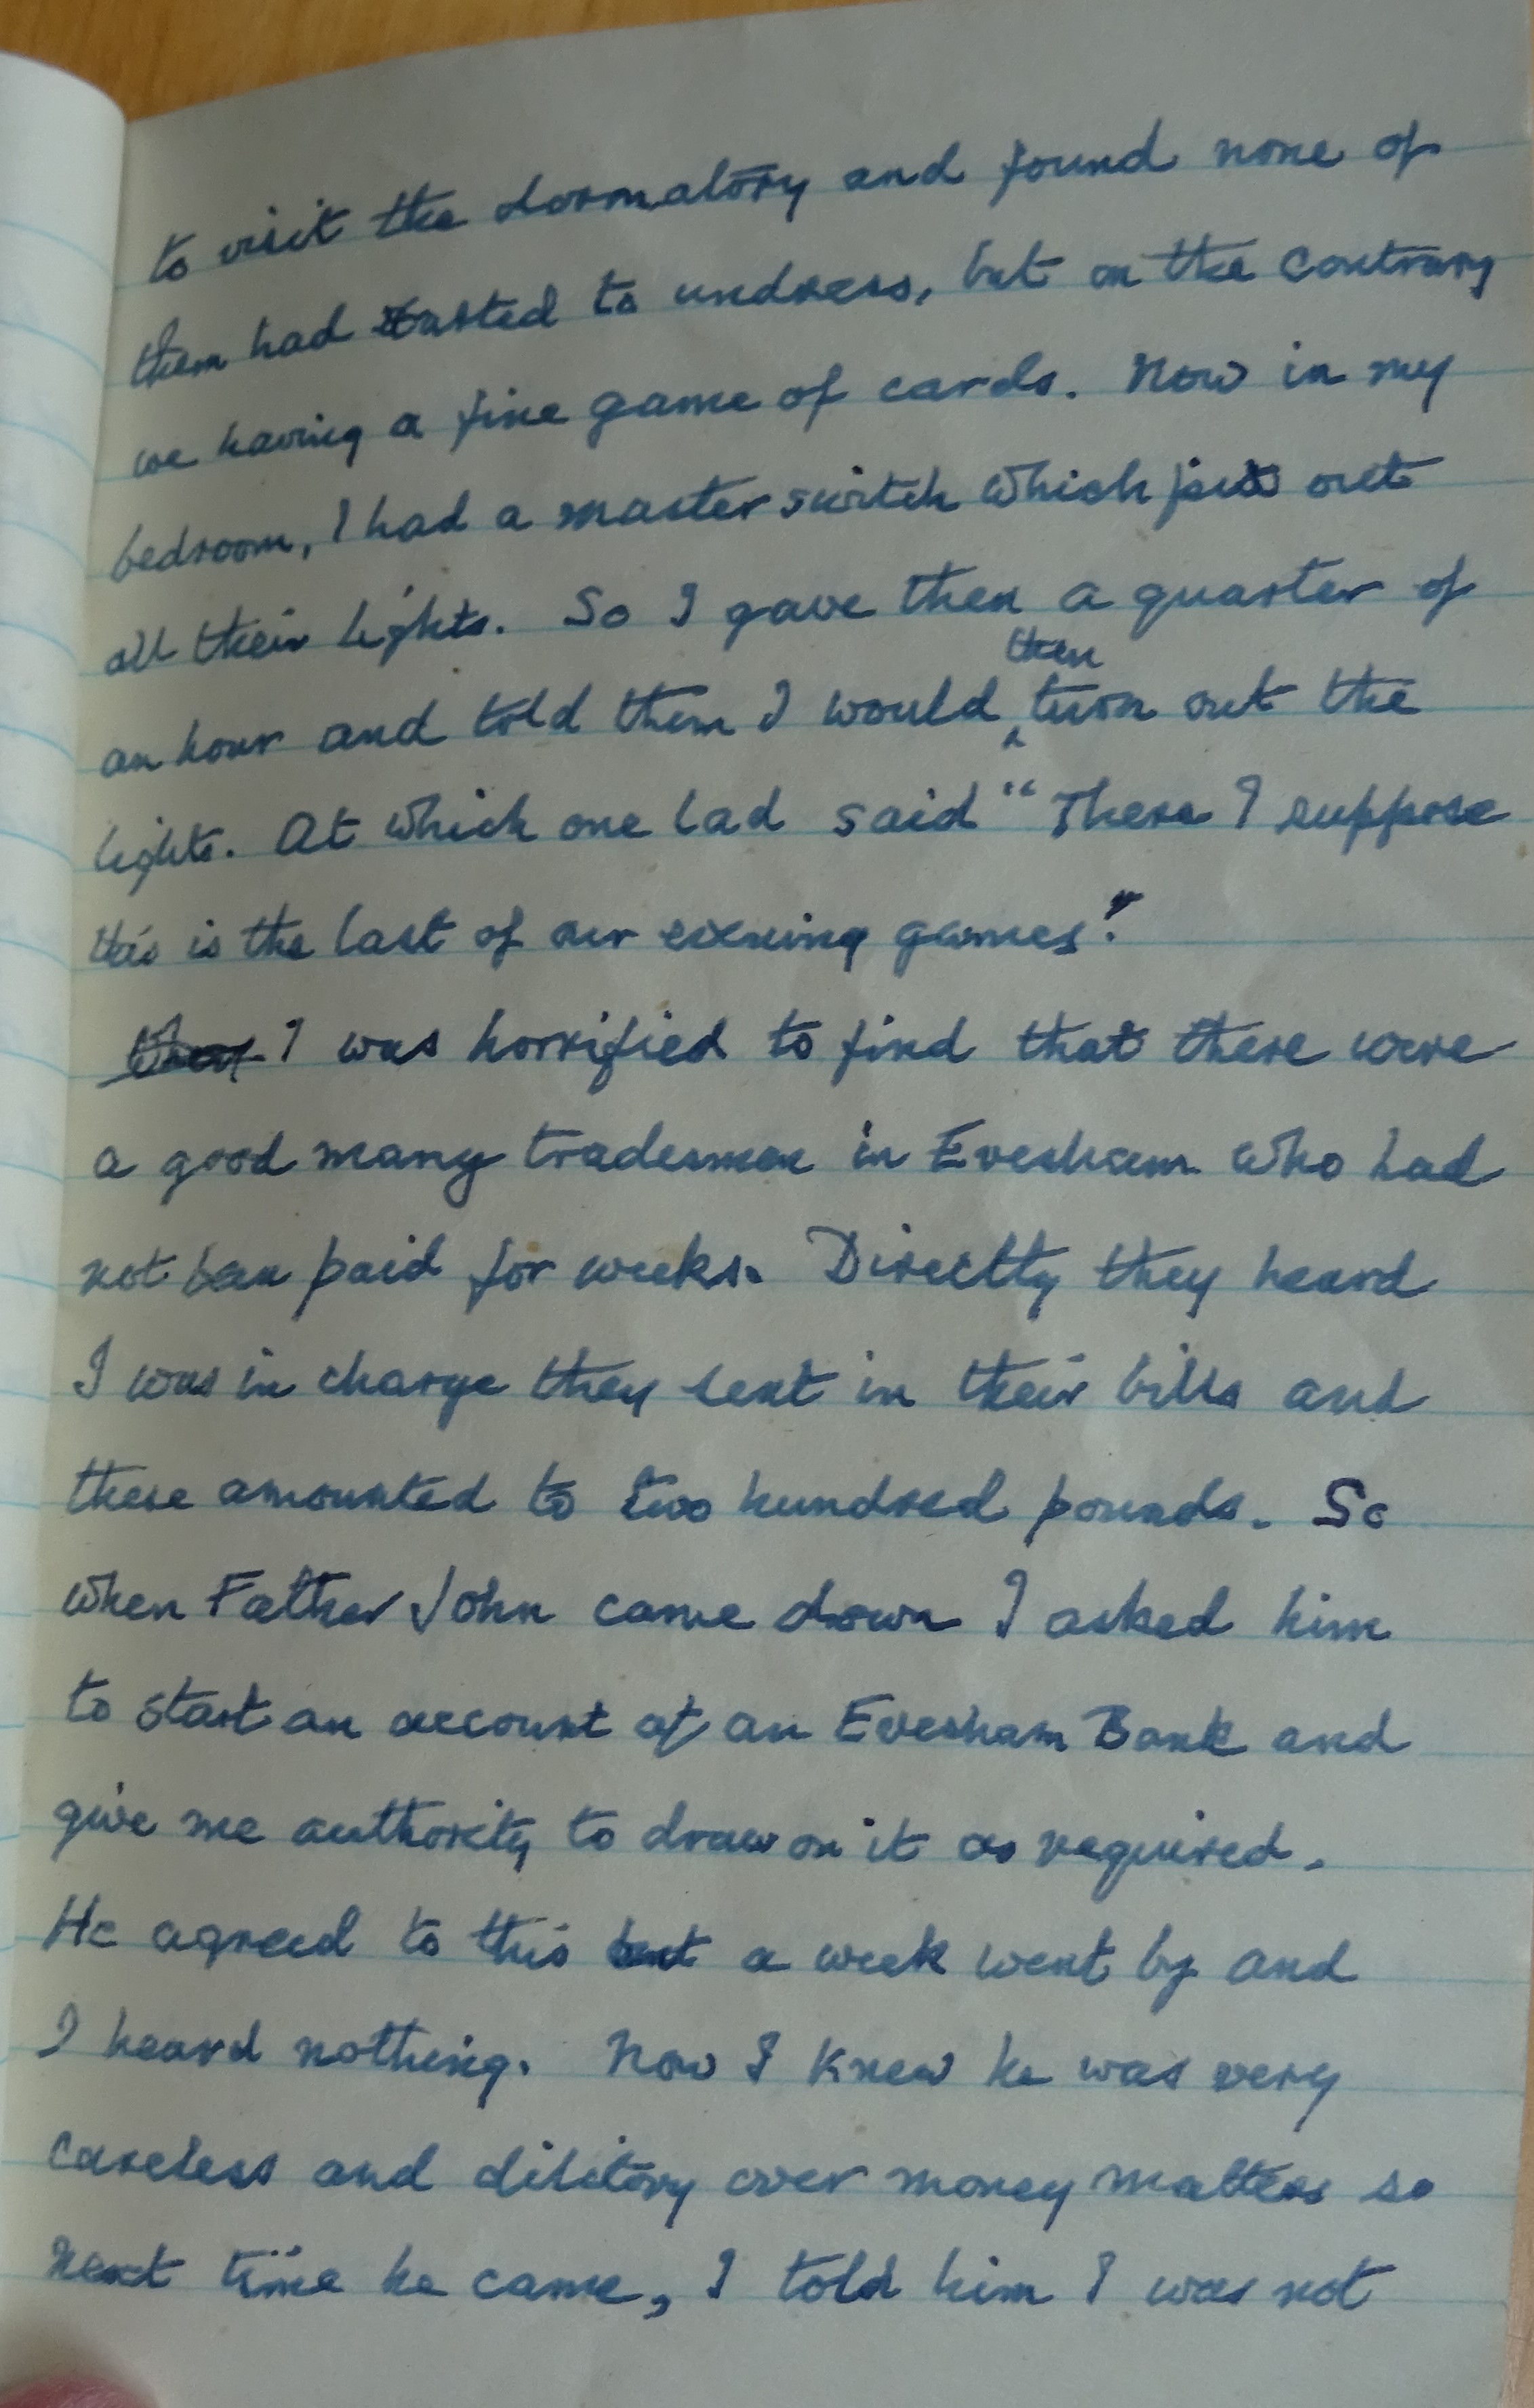 to visit the dormatory and found none of
them had started to undress, but on the contrary
we having a fine game of cards. Now in my
bedroom, I had a master switch which put out
all their lights. So I gave them a quarter of
then
an hour and told them I would turn out the
lights. At which one lad said "There I suppose
this is the last of our evening games".
I was horrified to find that there were
a good many tradesmen in Evesham who had
not been paid for weeks. Directly they heard
I was in charge they sent in their bills and
these amounted to two hundred pounds. So
when Father John came down I asked him
to start an account at an Evesham Bank and
give me authority to draw on it as required.
He agreed to this but a week went by and
I heard nothing. Now I knew he was very
careless and dilitory over money matters so
next time he came, I told him I was not